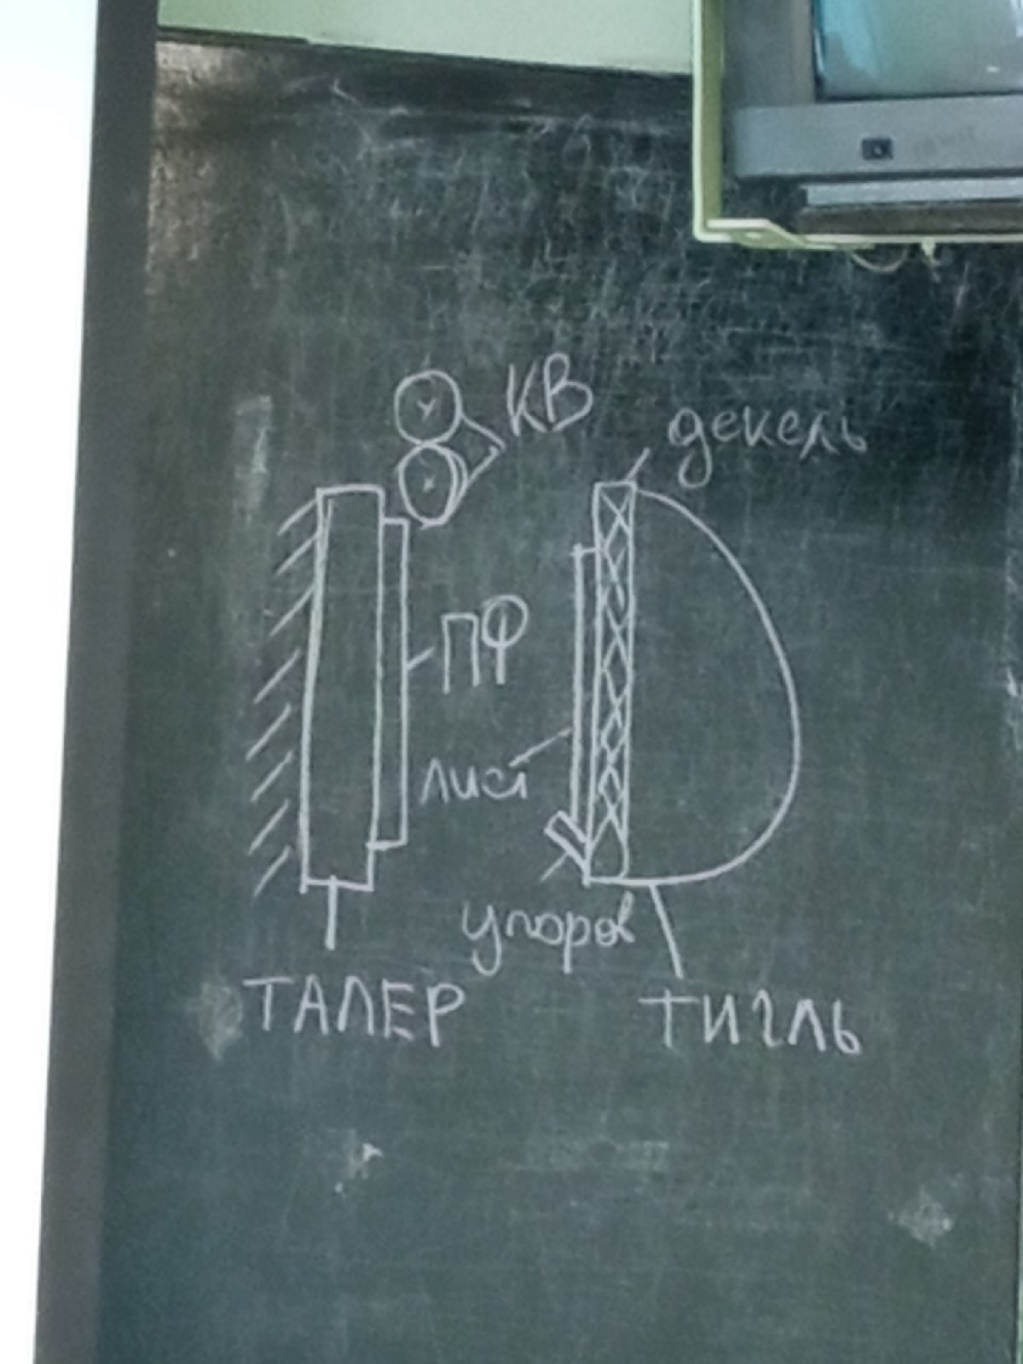 КВ
декель
ПФ
лист
упоров
ТАЛЕР
ТИГЛЬ